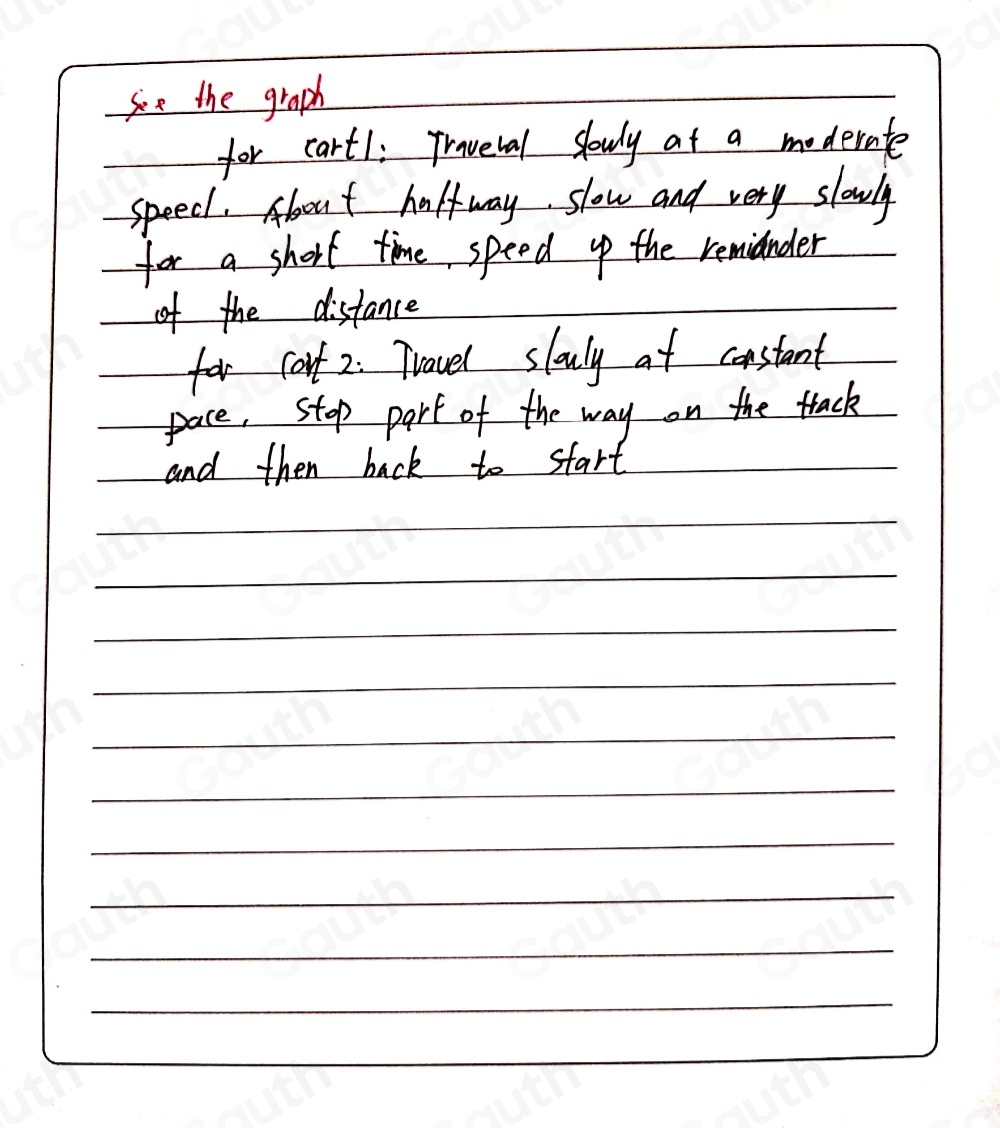 see the graph
for cart1: Traveral slowly at a moderate
speed. About halfway. slow and very slowly
for a short time, speed up the remiander
of the distance
for cart 2: Travel slowly at constant
pace, stop part of the way on the track
and then back to start